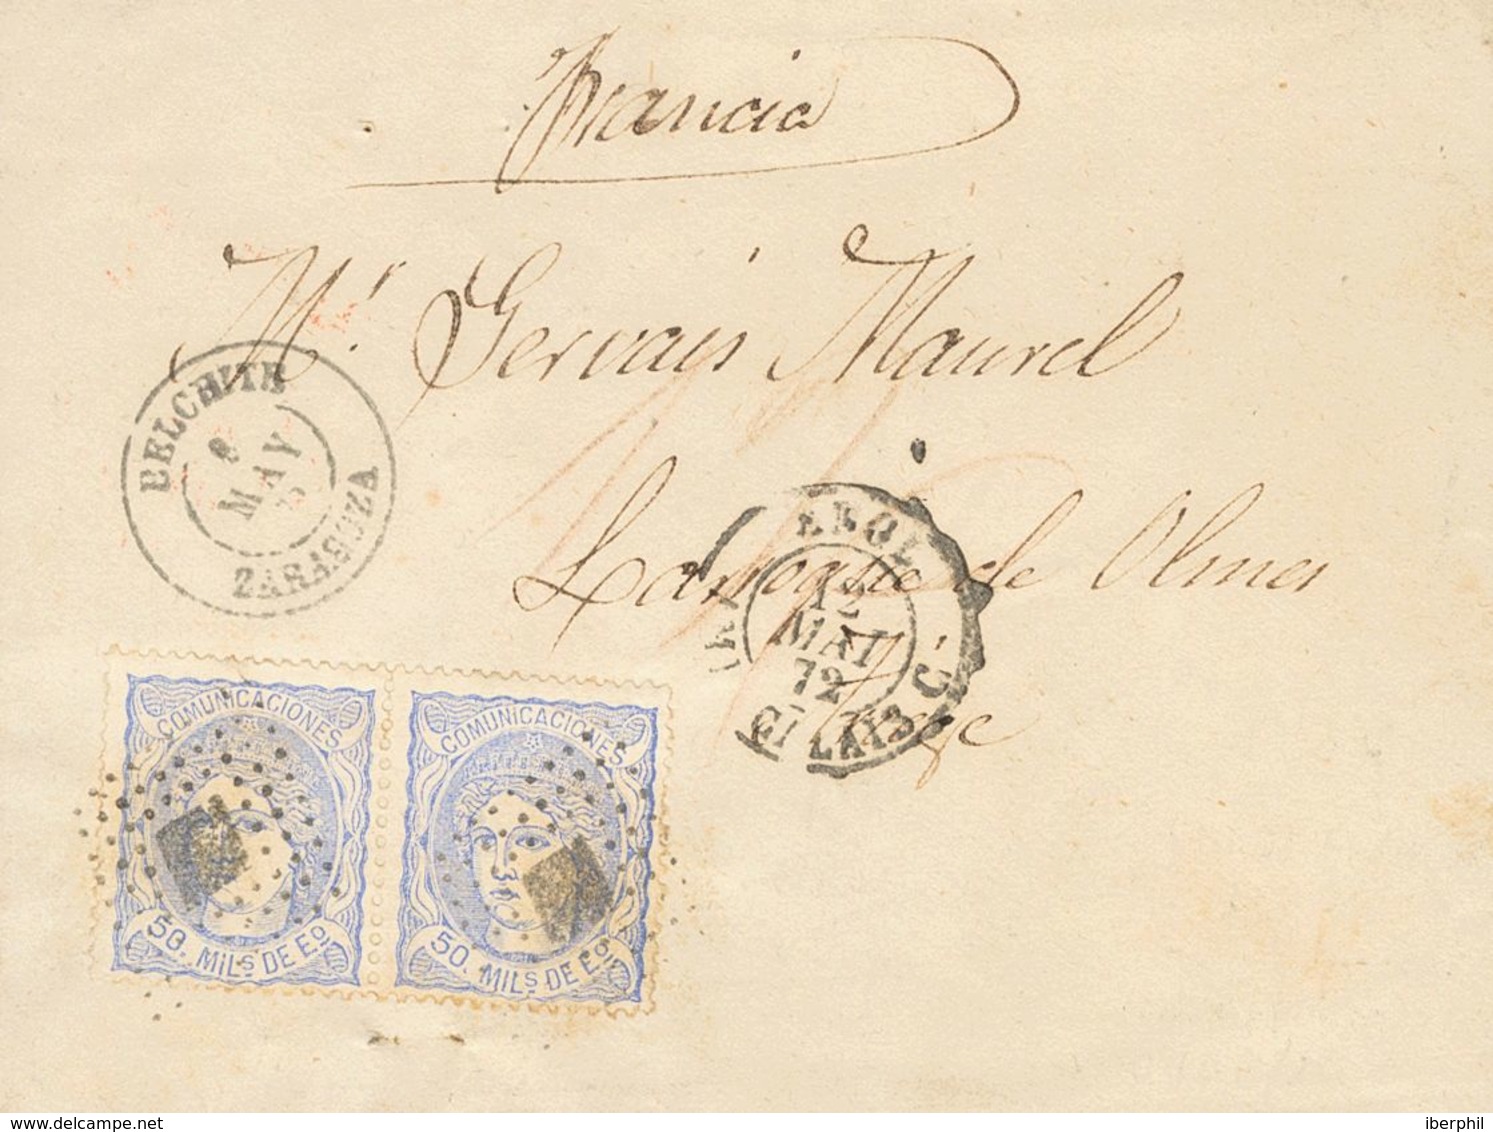 Francia
Mr. Gervais Maurel
BELCHITE
MAY
ZARAGOZA
Laroque de Olmes
12
MAI
72
COMUNICACIONES
50. MILs DE Eo.
COMUNICACIONES
50. MILs DE Eo.
www.delcampe.net
iberphil